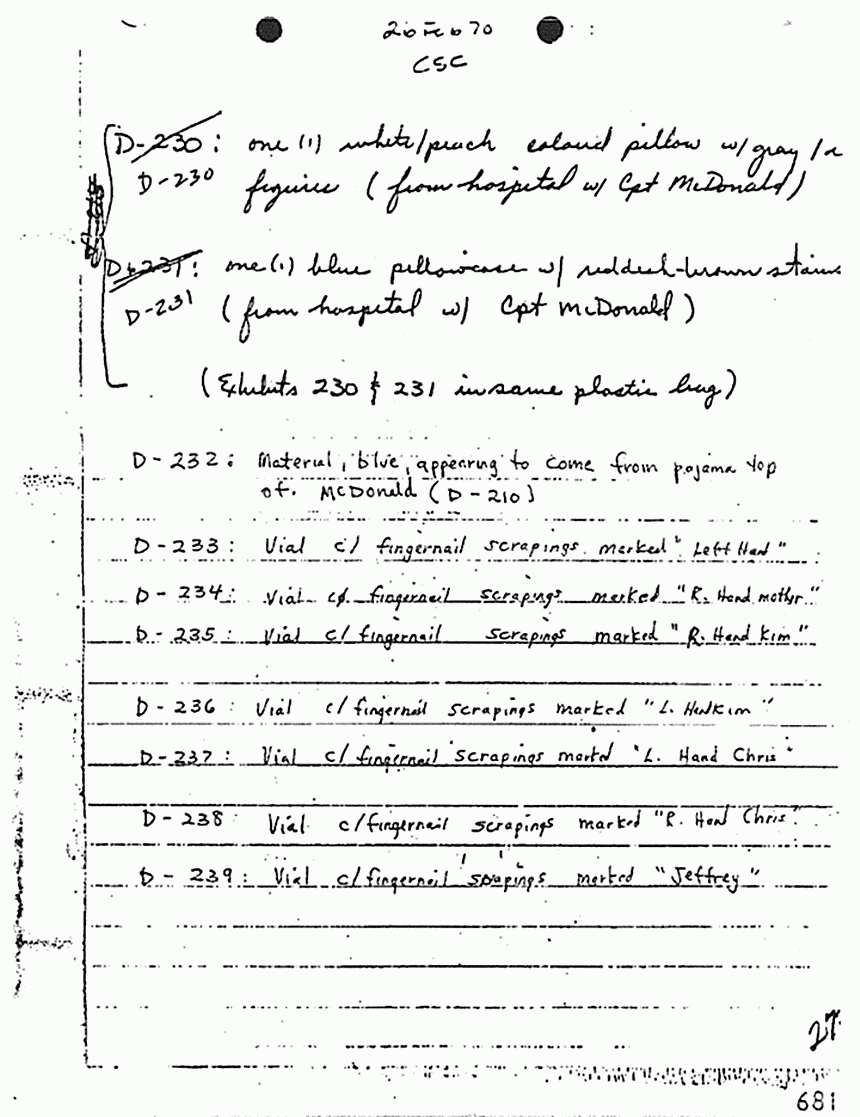 26 Feb 70
CSC
D-230: one (1) white/peach coloured pillow w/ gray
D-230 figures (from hospital w/ Cpt McDonald)
D-231: one (1) blue pillowcase w/ reddish-brown stains
D-231 (from hospital w/ Cpt McDonald)
(Exhibits 230 & 231 in same plastic bag)
D-232: Material, blue, appearing to come from pajama top
of. McDonald (D-210)
D-233: Vial c/ fingernail scrapings marked "Left Hand"
D-234: Vial c/ fingernail scrapings marked "R. Hand mother"
D-235: Vial c/ fingernail scrapings marked "R. Hand Kim"
D-236: Vial c/ fingernail scrapings marked "L. Hand Kim"
D-237: Vial c/ fingernail scrapings marked "L. Hand Chris"
D-238 Vial c/ fingernail scrapings marked "R. Hand Chris"
D-239: Vial c/ fingernail scrapings marked "Jeffrey"
27
681